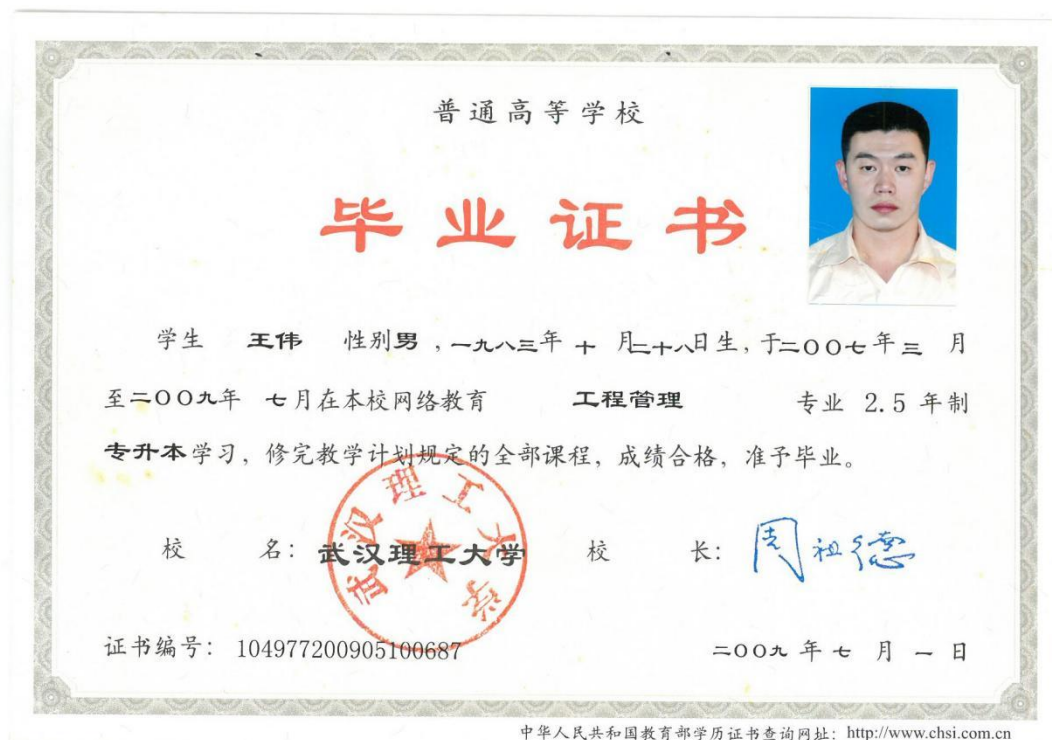 普通高等学校
毕业证书
学生 王伟 性别男，一九八三年 十 月二十八日生，于二〇〇七年三 月
至二〇〇九年 七月在本校网络教育 工程管理 专业 2.5 年制
专升本学习，修完教学计划规定的全部课程，成绩合格，准予毕业。
校 名：武汉理工大学 校 长：周祖德
武汉理工大学
证书编号：104977200905100687 二〇〇九 年 七 月 一 日
中华人民共和国教育部学历证书查询网址：http://www.chsi.com.cn